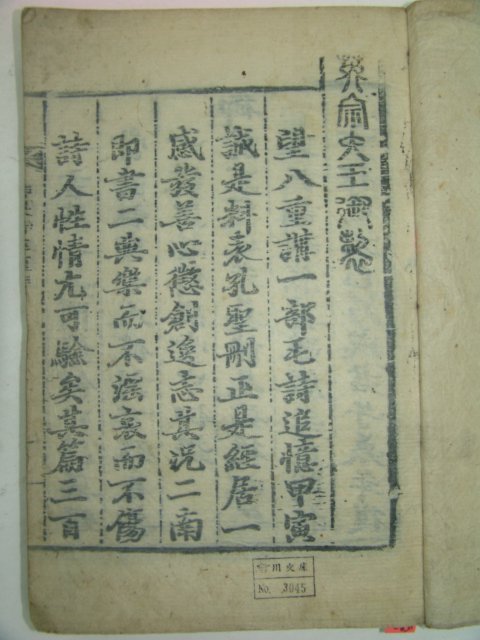 英宗大王御製
望八重講一部毛詩追憶甲寅
誠是料表孔聖刪正是經居一
感發善心懲創逸志其況二南
即書二典樂而不淫哀而不傷
詩人性情尤可驗矣其篇三百
川文庫
No. 3045